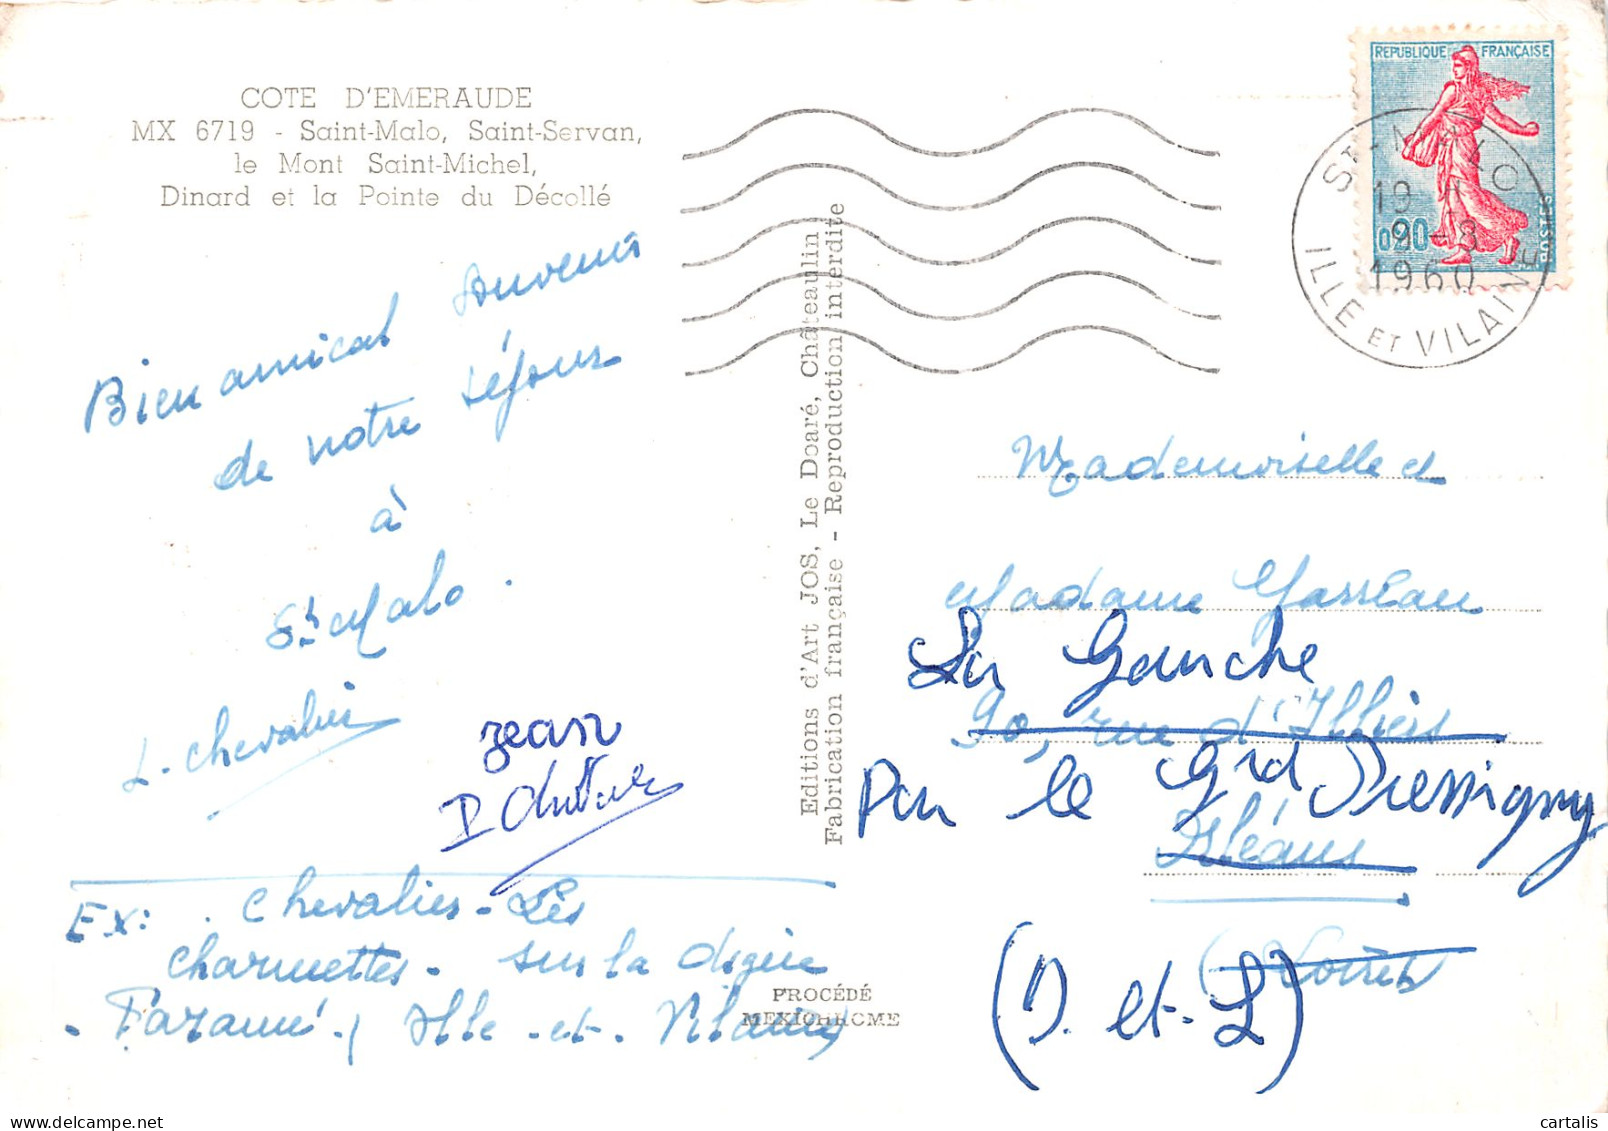 COTE D'EMERAUDE
MX 6719 - Saint-Malo, Saint-Servan,
le Mont Saint-Michel,
Dinard et la Pointe du Décollé
Bien amical souvenir
de notre séjour
à
St Malo.
L. Chevalier
Jean
Ex: . Chevalier - Les
Charmettes - sur la digue
- Paramé - ( Ille - et - Vilaine)
Editions d'Art JOS, Le Doaré, Châteaulin
Fabrication française - Reproduction interdite
PROCÉDÉ
MEXICHROME
REPUBLIQUE FRANÇAISE
0,20
POSTES
ST-MALO
19 H
9 - 8
1960
ILLE ET VILAINE
Mademoiselle et
Madame Gasseau
La Gauche
90, rue d'Illiers
Par le Grd Pressigny
Orléans
(Loiret)
(I. et - L)
cartalis
delcampe.net